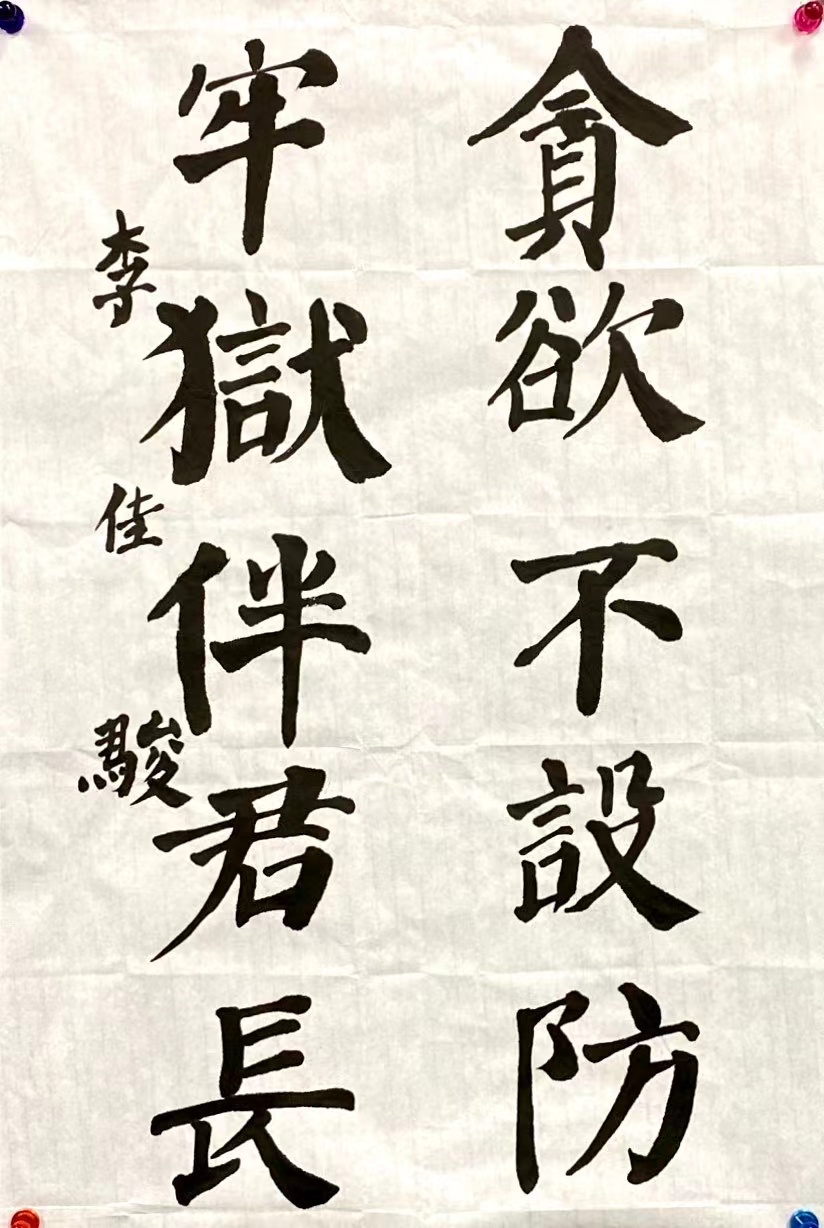 貪欲不設防
牢獄伴君長
李佳駿